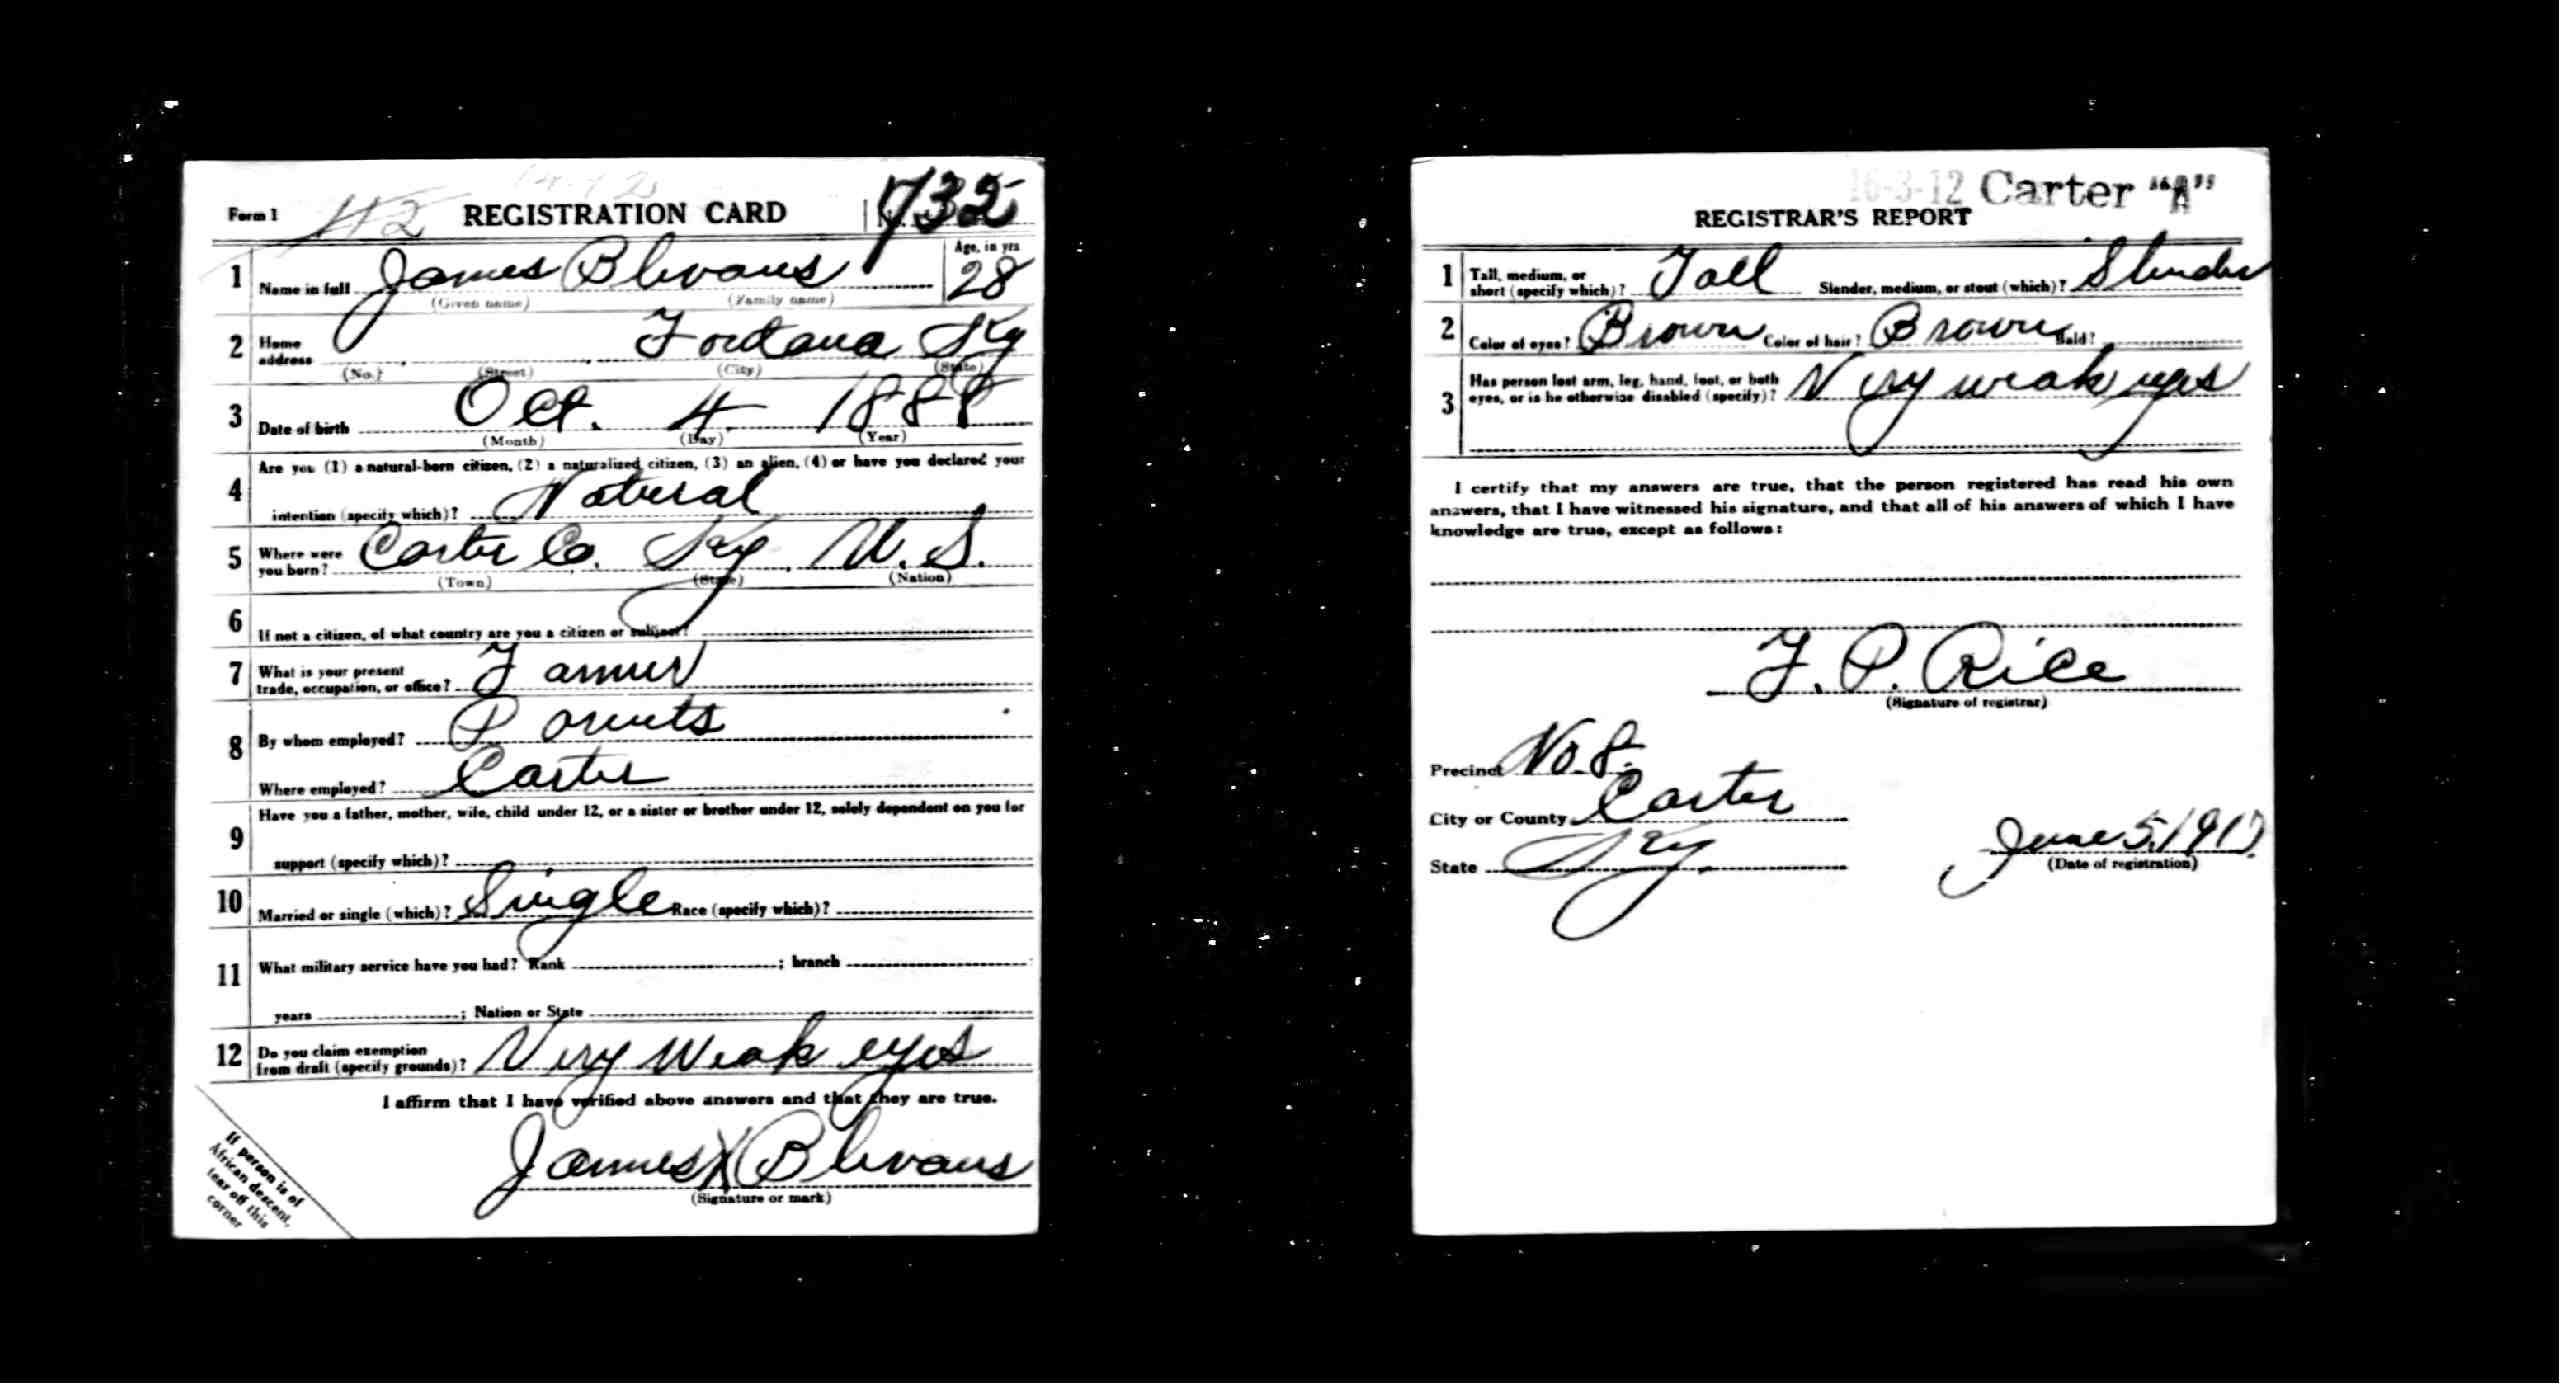 Form 1 42 REGISTRATION CARD 732
1 Name in full James Blevans Age, in yrs 28
(Given name) (Family name)
2 Home address Fontana Ky
(No.) (Street) (City) (State)
3 Date of birth Oct. 4 1888
(Month) (Day) (Year)
4 Are you (1) a natural-born citizen, (2) a naturalized citizen, (3) an alien, (4) or have you declared your
intention (specify which)? Natural
5 Where were you born? Carter Co. Ky U.S.
(Town) (State) (Nation)
6 If not a citizen, of what country are you a citizen or subject?
7 What is your present
trade, occupation, or office? Farmer
8 By whom employed? Parents
Where employed? Carter
9 Have you a father, mother, wife, child under 12, or a sister or brother under 12, solely dependent on you for
support (specify which)?
10 Married or single (which)? Single Race (specify which)?
11 What military service have you had? Rank ; branch
years ; Nation or State
12 Do you claim exemption
from draft (specify grounds)? Very Weak eyes
I affirm that I have verified above answers and that they are true.
James X Blevans
(Signature or mark)
If person is of
African descent,
tear off this
corner
16-3-12 Carter "A"
REGISTRAR'S REPORT
1 Tall, medium, or
short (specify which)? Tall Slender, medium, or stout (which)? Slender
2 Color of eyes? Brown Color of hair? Brown Bald?
3 Has person lost arm, leg, hand, foot, or both
eyes, or is he otherwise disabled (specify)? Very weak eyes
I certify that my answers are true, that the person registered has read his own
answers, that I have witnessed his signature, and that all of his answers of which I have
knowledge are true, except as follows:
F. P. Rice
(Signature of registrar)
Precinct No. 8.
City or County Carter
State Ky.
June 5, 1917
(Date of registration)